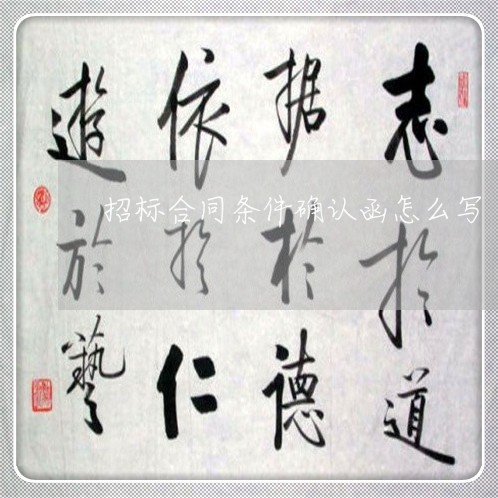 志於道
据於德
依於仁
遊於藝
招标合同条件确认函怎么写